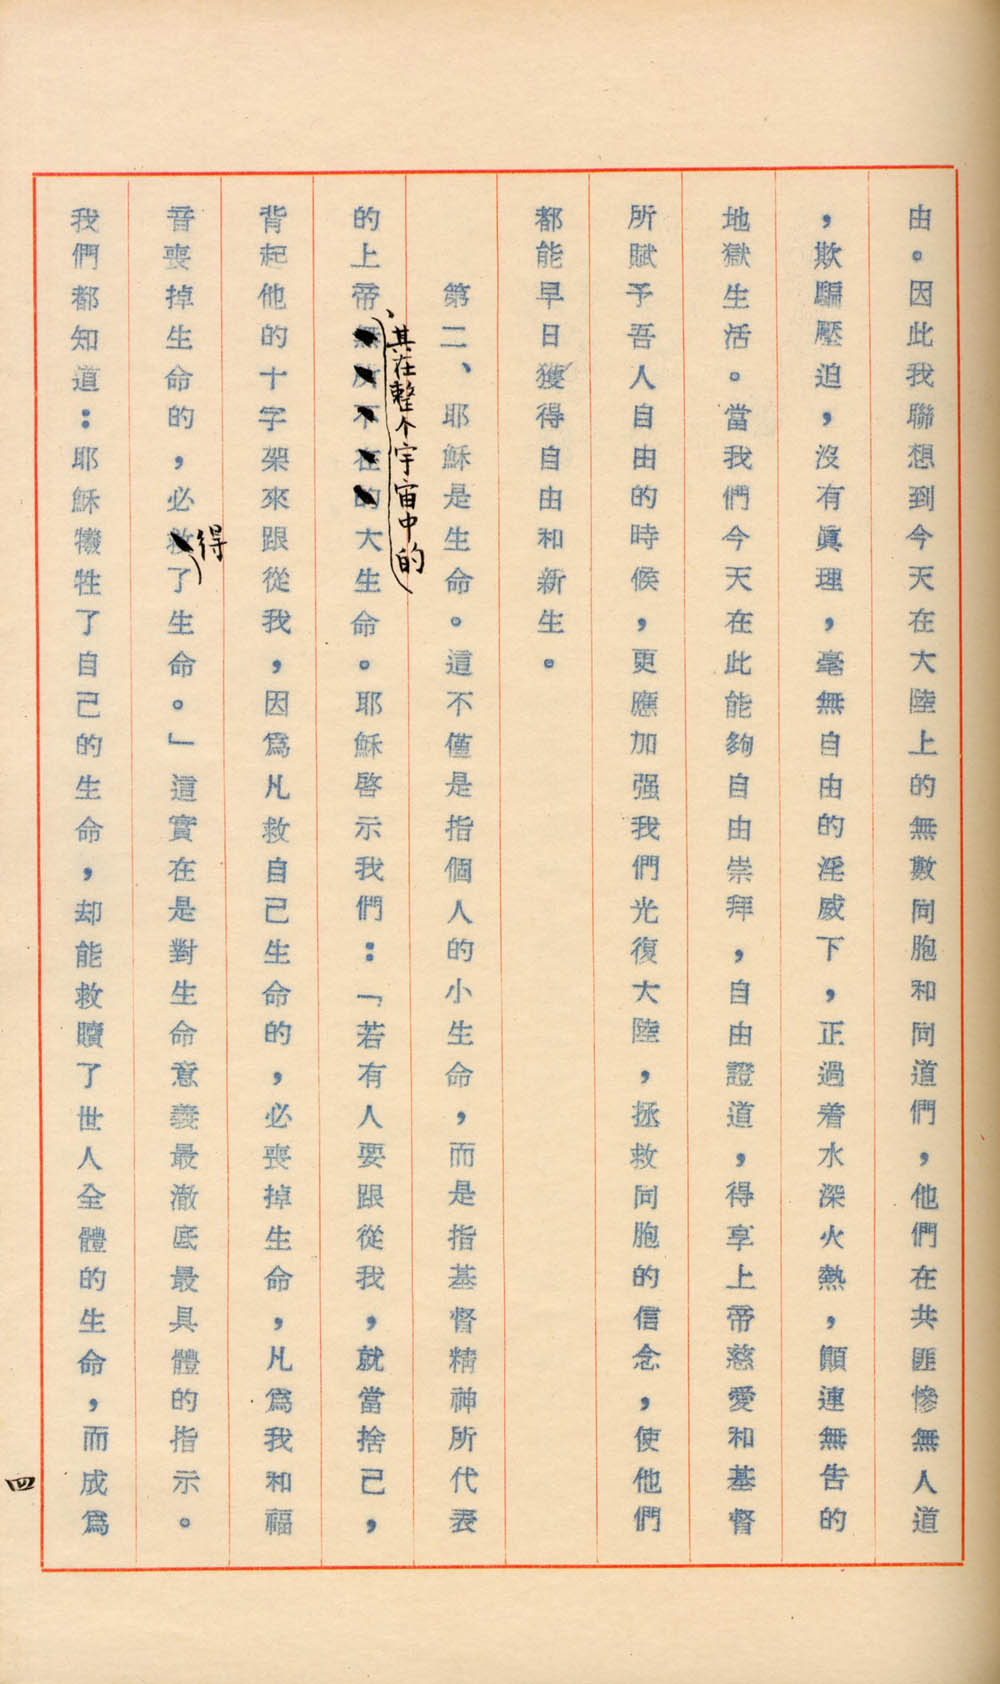 由。因此我聯想到今天在大陸上的無數同胞和同道們，他們在共匪慘無人道
，欺騙壓迫，沒有眞理，毫無自由的淫威下，正過着水深火熱，顚連無告的
地獄生活。當我們今天在此能夠自由崇拜，自由證道，得享上帝慈愛和基督
所賦予吾人自由的時候，更應加强我們光復大陸，拯救同胞的信念，使他們
都能早日獲得自由和新生。
第二、耶穌是生命。這不僅是指個人的小生命，而是指基督精神所代表
、其在整个宇宙中的
的上帝無所不在的大生命。耶穌啓示我們：「若有人要跟從我，就當捨己，
背起他的十字架來跟從我，因爲凡救自己生命的，必喪掉生命，凡爲我和福
得
音喪掉生命的，必救了生命。」這實在是對生命意義最澈底最具體的指示。
我們都知道：耶穌犧牲了自己的生命，却能救贖了世人全體的生命，而成爲
四